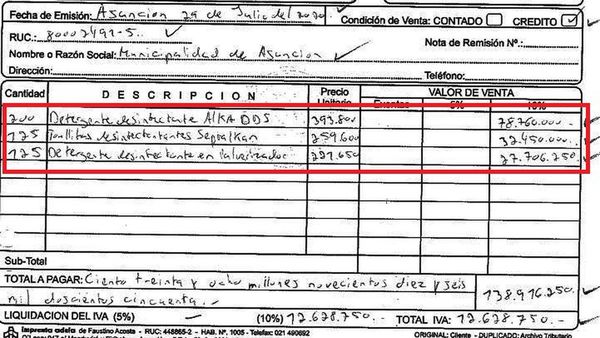 Fecha de Emisión: Asunción 29 de Julio del 2020
Condición de Venta: CONTADO CREDITO ✓
RUC.: 80002492-5
Nota de Remisión Nº:
Nombre o Razón Social: Municipalidad de Asunción
Dirección: Teléfono:
Cantidad DESCRIPCION Precio Unitario VALOR DE VENTA
Exentas 5% 10%
200 Detergente desinfectante ALKA DDS 393.800 78.760.000
125 Toallitas desinfectantes Septalkan 259.600 32.450.000
125 Detergente desinfectante en 221.650 27.706.250
Sub-Total
TOTAL A PAGAR: Ciento treinta y ocho millones novecientos diez y seis
mil doscientos cincuenta. 138.916.250
LIQUIDACION DEL IVA (5%) (10%) 12.628.750 TOTAL IVA: 12.628.750
de Faustino Acosta - RUC: 448865-2 - HAB. Nº. 1005 - Telefax: 021 490692
ORIGINAL: Cliente - DUPLICADO: Archivo Tributario